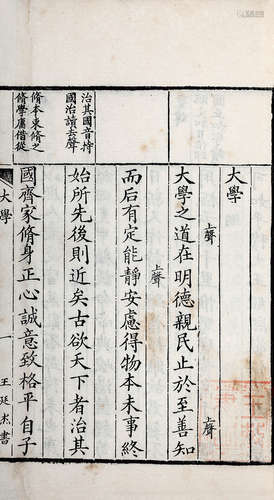 大學
大學之道在明德親民止於至善知
上聲
上聲
而后有定能靜安慮得物本末事終
上聲
始所先後則近矣古欲天下者治其
治其國音持
國治讀去聲
國齊家脩身正心誠意致格平自子
脩本束脩之
脩學庸借從
大學
一
王廷杰書